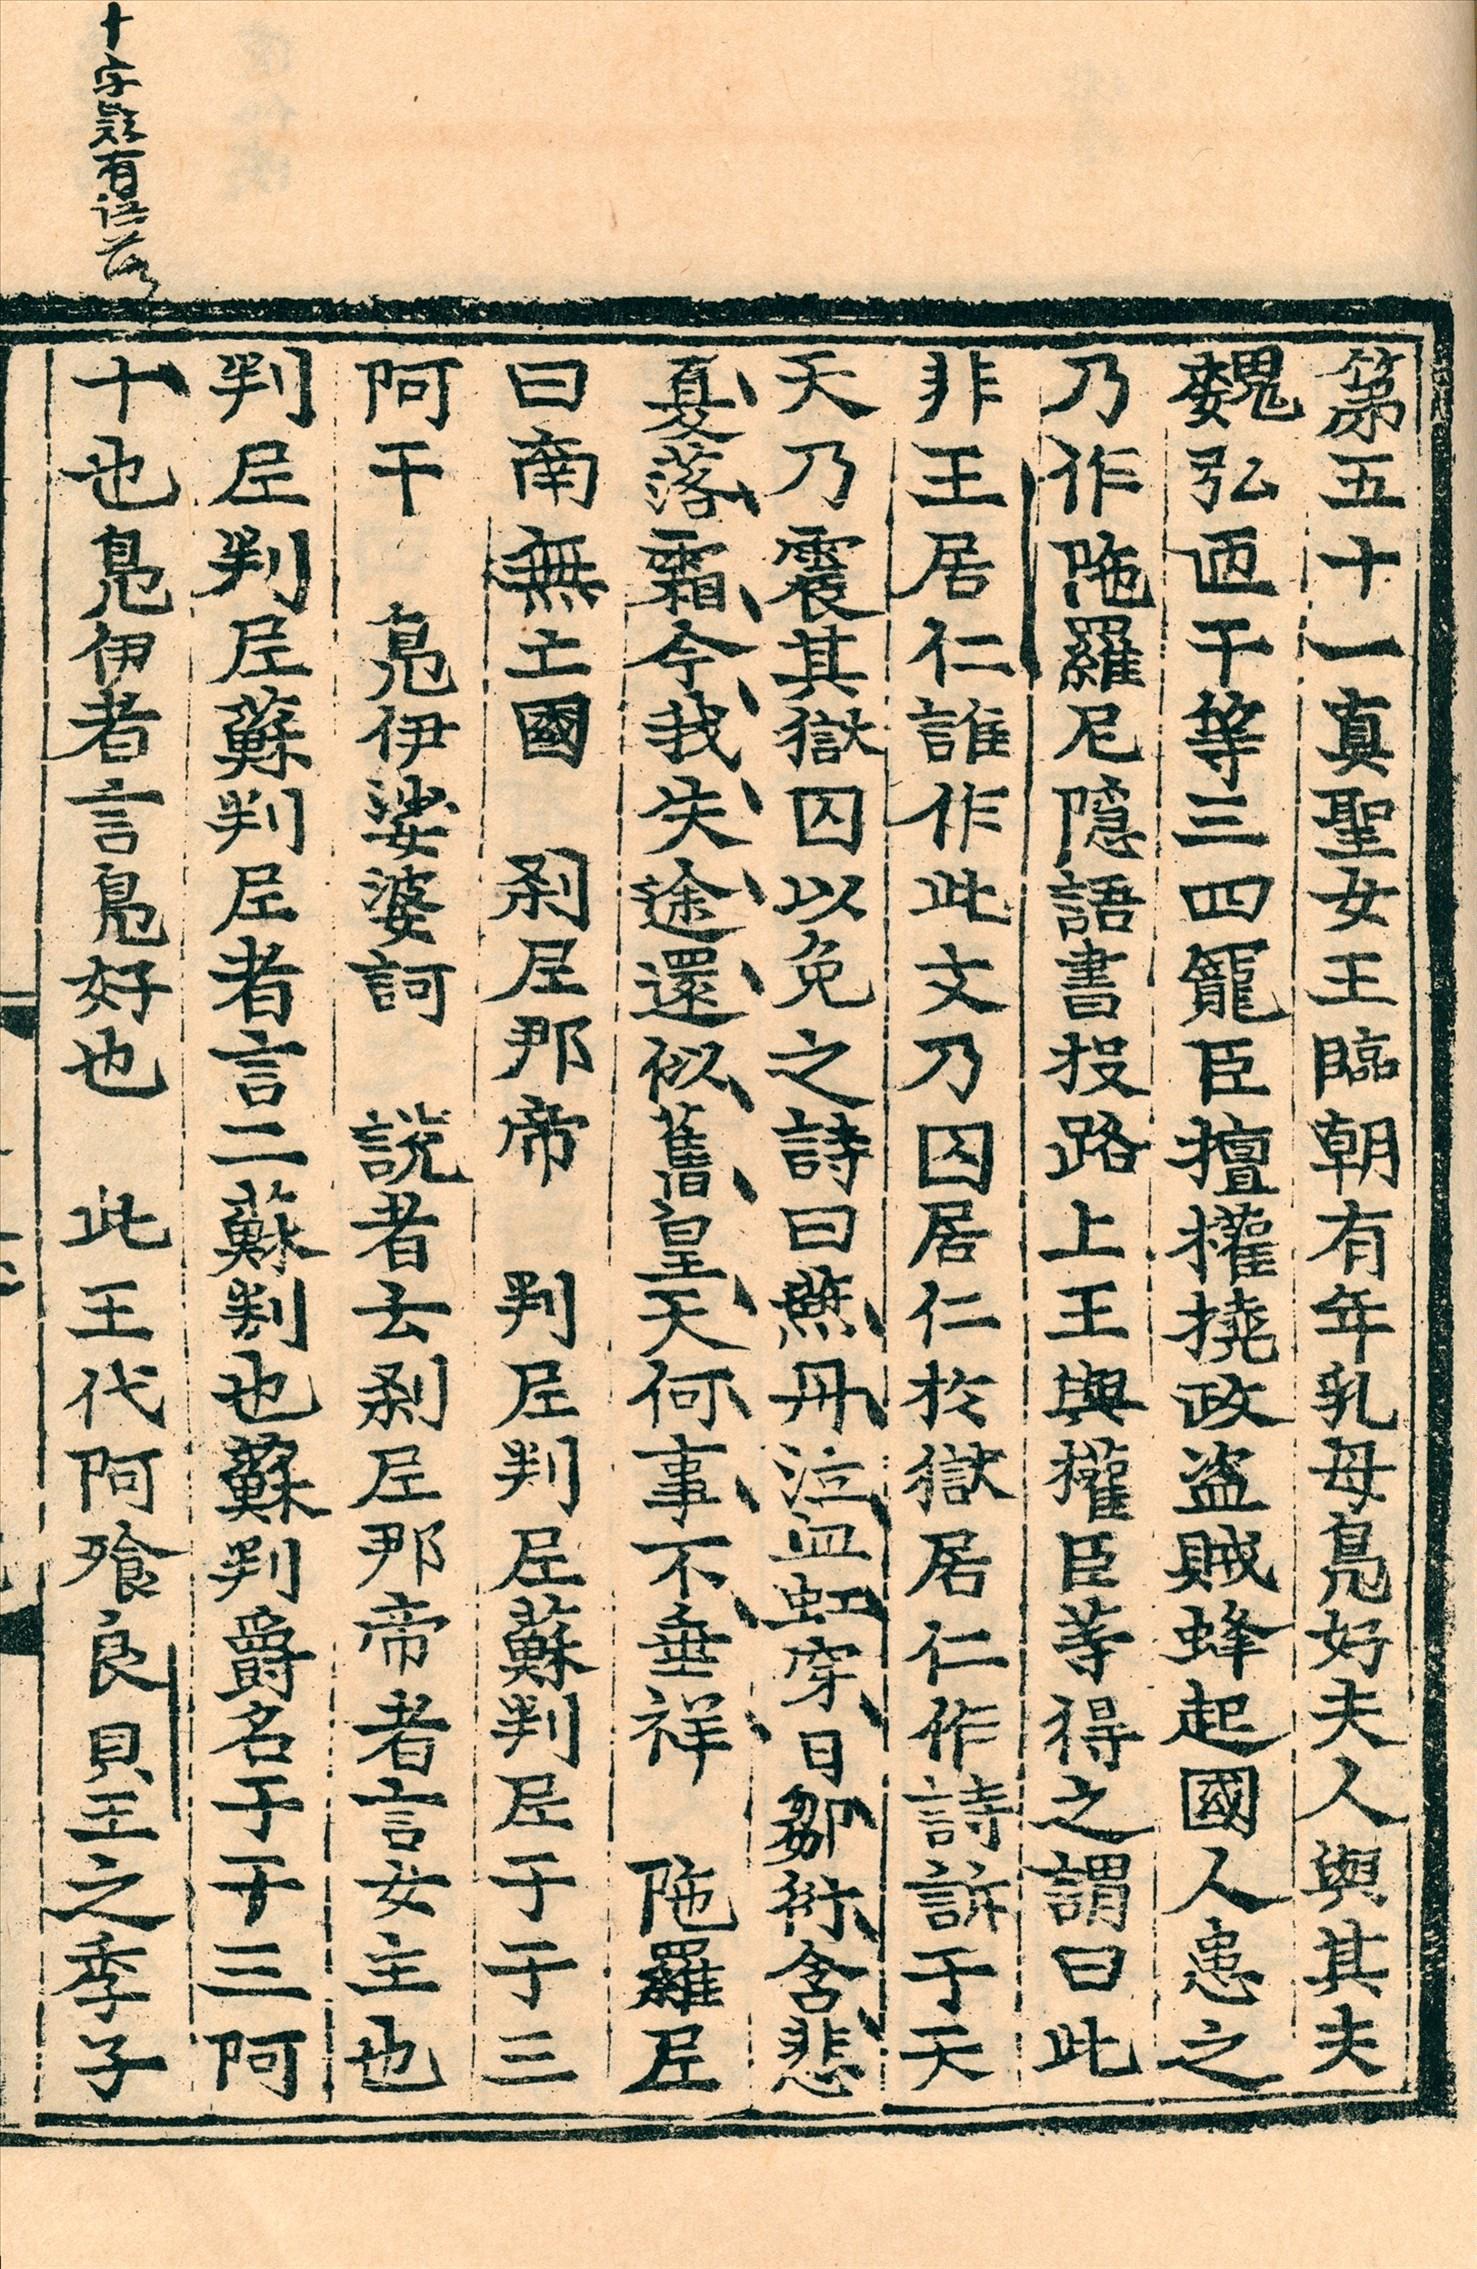 第五十一真聖女王臨朝有年乳母鳧好夫人與其夫
魏弘匝干等三四寵臣擅權撓政盗賊蜂起國人患之
乃作陁羅尼隱語書投路上王與權臣等得之謂曰此
非王居仁誰作此文乃囚居仁於獄居仁作詩訴于天
天乃震其獄囚以免之詩曰燕丹泣血虹穿日鄒衍含悲
夏落霜今我失途還似舊皇天何事不垂祥 陁羅尼
曰南無亡國 刹尼那帝 判尼判尼蘇判尼于于三
阿干 鳧伊娑婆訶 說者云刹尼那帝者言女主也
判尼判尼蘇判尼者言二蘇判也蘇判爵名于于三阿
十也鳧伊者言鳧好也 此王代阿飡良貝王之季子
十字疑有誤